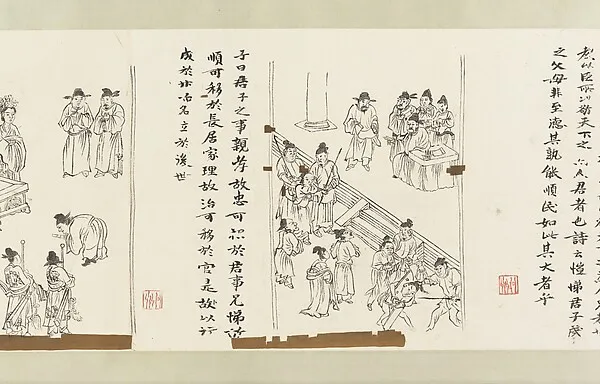 教以臣所以敬天下之為人君者也詩云愷悌君子民
之父母非至德其孰能順民如此其大者乎
子曰君子之事親孝故忠可移於君事兄悌故
順可移於長居家理故治可移於官是故以行
成於內而名立於後世